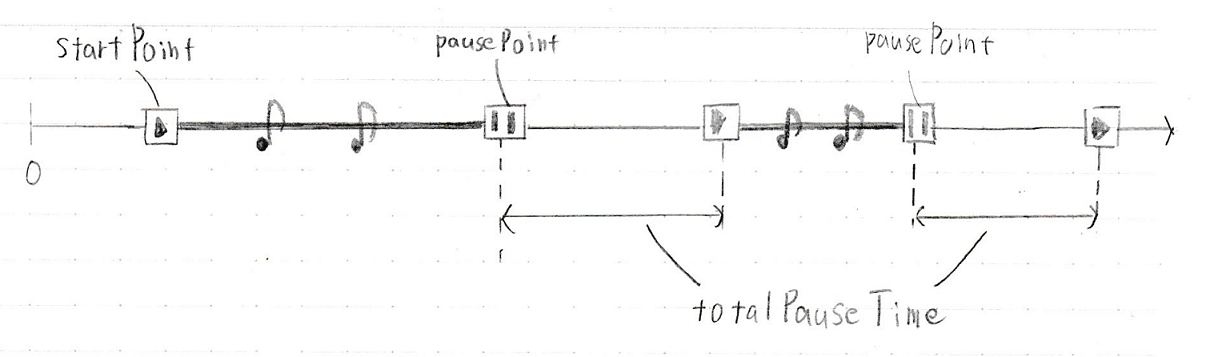 startPoint
pausePoint
pausePoint
0
totalPauseTime